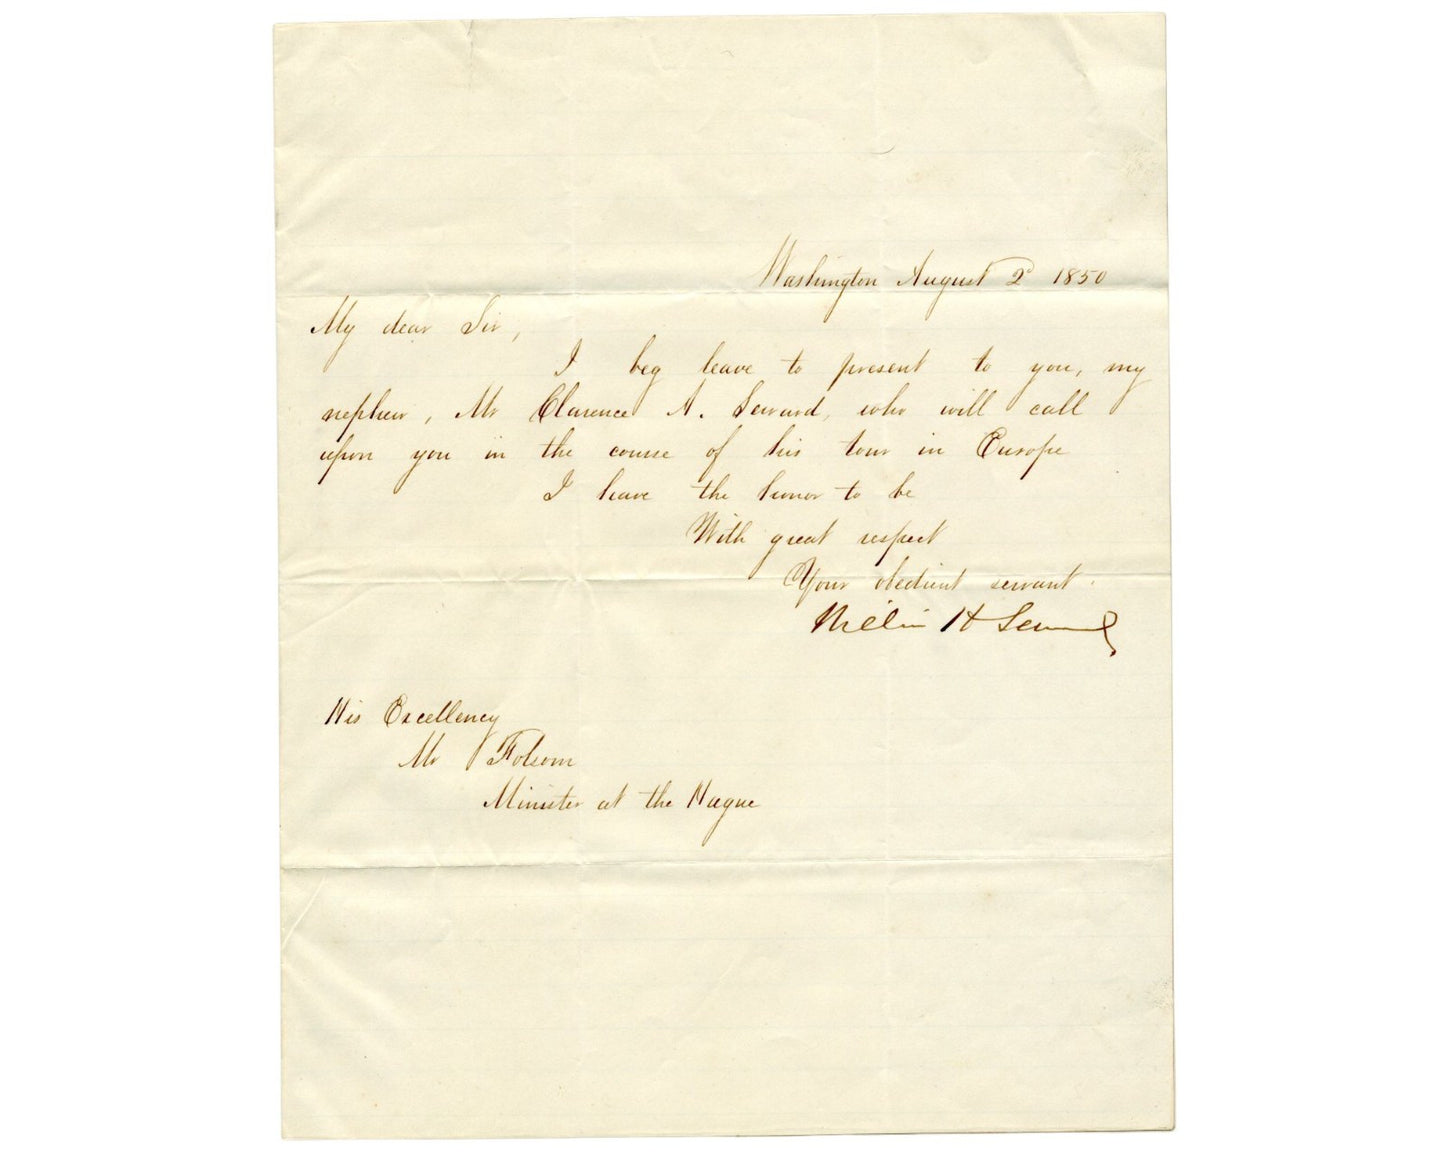 Washington August 2d 1850
My dear Sir,
I beg leave to present to you, my
nephew, Mr Clarence A. Seward, who will call
upon you in the course of his tour in Europe
I have the honor to be
With great respect
Your obedient servant.
William H Seward
His Excellency
Mr Folsom
Minister at the Hague